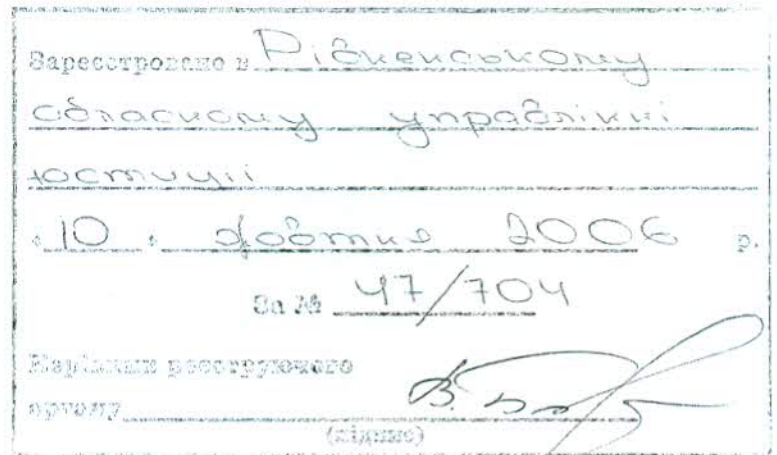 Зареєстровано в Рівненському
обласному управлінні
юстиції
« 10 » жовтня 2006 р.
За № 47/704
Керівник реєструючого
органу
(підпис)